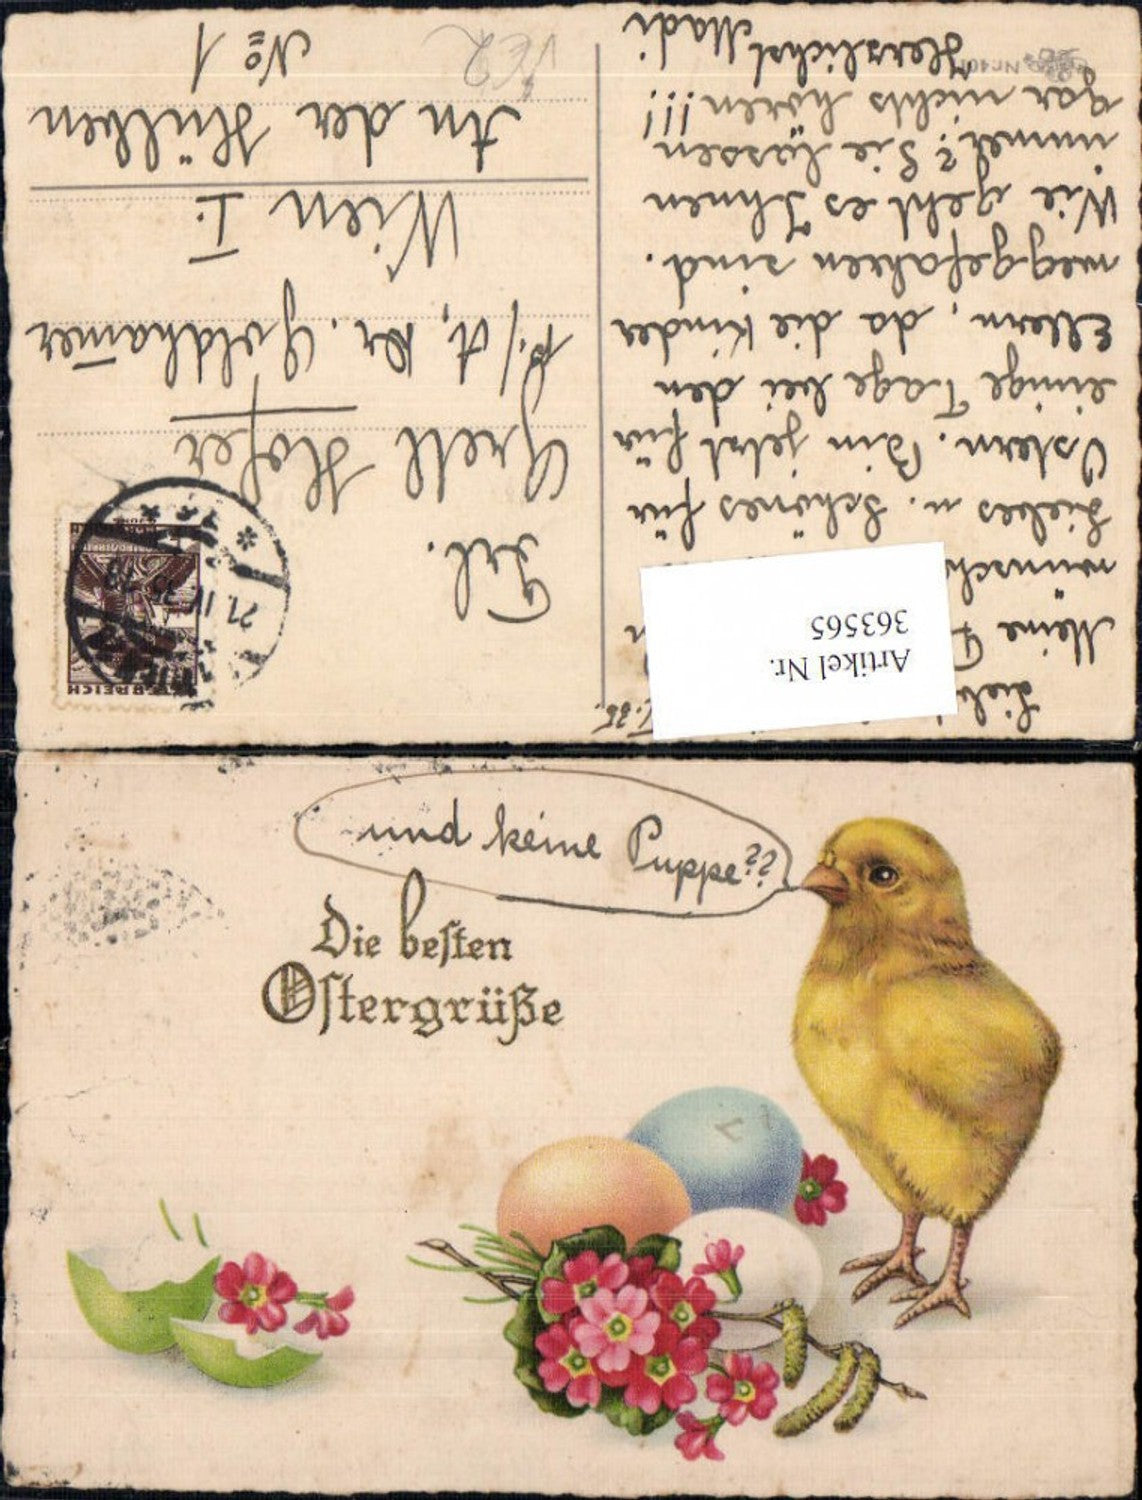 Lieb
Meine
wünsch
Liebes u. Schönes für
Ostern. Bin jetzt für
einige Tage bei den
Eltern, da die Kinder
weggefahren sind.
Wie geht es Ihnen
immer? Sie lassen
gar nichts hören!!!
Herzlichst Madi
Artikel Nr.
363565
Frl.
Gretl Hofer
p./A. Dr. Goldhamer
Wien I.
An der Hülben
No 1
21.IV.35
und keine Puppe??
Die beſten
Oſtergrüße